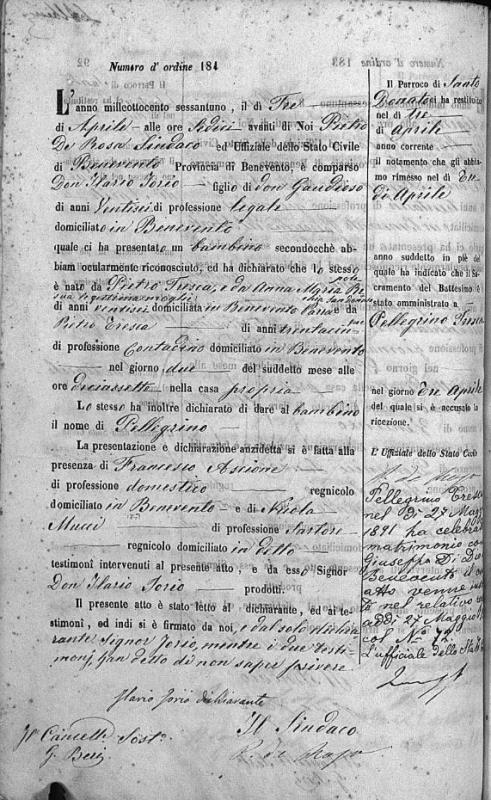 Numero d' ordine 184
L'anno milleottocento sessantuno, il di Tre
di Aprile alle ore Sedici avanti di Noi Pietro
De Rosa Sindaco ed Uffiziale dello Stato Civile
di Benevento Provincia di Benevento, è comparso
Don Ilario Iorio figlio di don Gaudioso
di anni Ventisei di professione legale
domiciliato in Benevento
quale ci ha presentato un bambino secondocchè ab-
biam ocularmente riconosciuto, ed ha dichiarato che lo stesso
è nato da Pietro Tresca, e da Anna Maria
sua legittima moglie
di anni ventisei domiciliata in Benevento e da
Pietro Tresca di anni trentacinque
di professione Contadino domiciliato in Benevento
nel giorno due del suddetto mese alle
ore diciassette nella casa propria
Lo stesso ha inoltre dichiarato di dare al bambino
il nome di Pellegrino
La presentazione e dichiarazione anzidetta si è fatta alla
presenza di Francesco Ascione
di professione domestico regnicolo
domiciliato in Benevento e di Nicola
Mucci di professione Sartore
regnicolo domiciliato in detto
testimonî intervenuti al presente atto, e da esso Signor
Don Ilario Iorio prodotti.
Il presente atto è stato letto al dichiarante, ed ai te-
stimoni, ed indi si è firmato da noi, e dal solo dichia
rante Signor Iorio, mentre i due testi-
monj, han detto di non saper scrivere
Ilario Iorio dichiarante
Il Cancell. Sost.
Il Sindaco
Il Parroco di Santo
Donato ci ha restituito
nel di tre
di aprile
anno corrente
il notamento che gli abbia-
mo rimesso nel di Tre
di Aprile
anno suddetto in piè del
quale ha indicato che il Sa-
cramento del Battesimo è
stato amministrato a
Pellegrino Tresca
nel giorno tre Aprile
del quale si è accusato la
ricezione.
L' Uffiziale dello Stato Civile
Pellegrino Tresca
nel dì 27 Maggio
1891 ha celebrato
matrimonio con
Giuseppa Di
Benevento il cui
atto venne
nel relativo
addì 27 Maggio
col N° 72.
L'ufficiale dello Stato